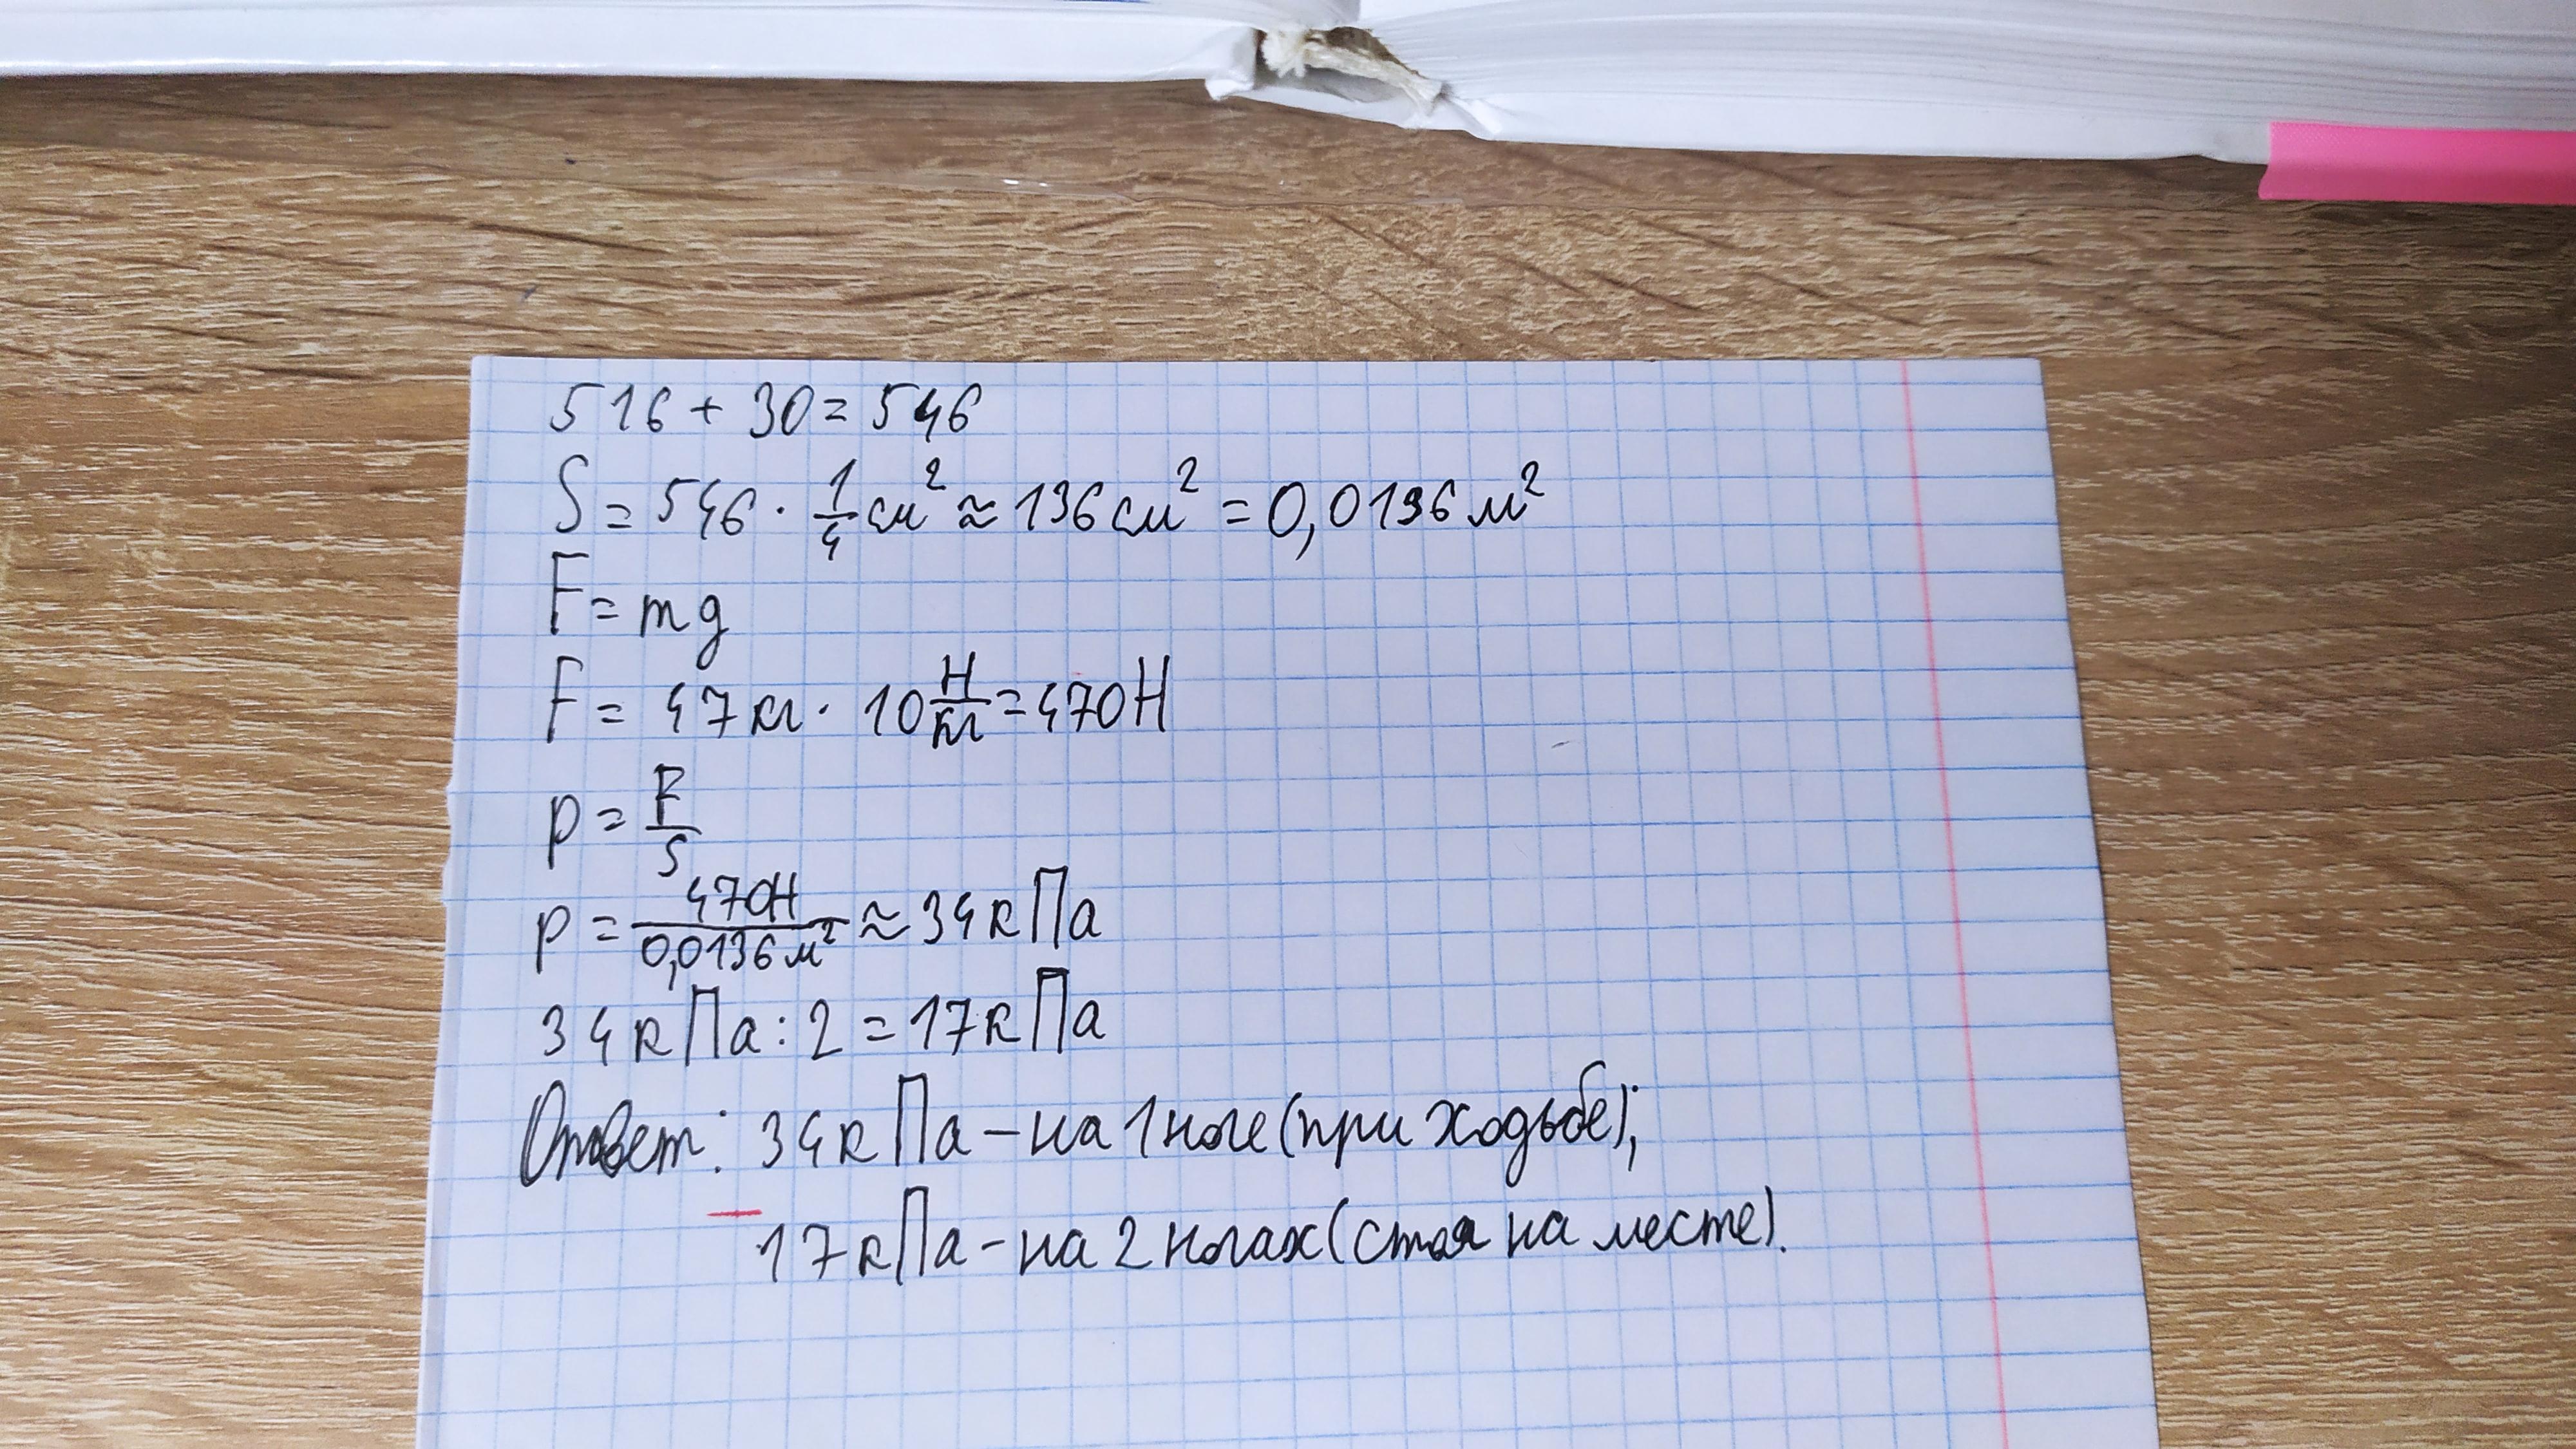 516 + 30 = 546
S = 546 · 1/4 см² ≈ 136 см² = 0,0136 м²
F = mg
F = 47 кг · 10 Н/кг = 470 Н
p = F/S
p = 470Н/0,0136 м² ≈ 34 кПа
34 кПа : 2 = 17 кПа
Ответ: 34 кПа – на 1 ноге (при ходьбе);
17 кПа – на 2 ногах (стоя на месте).